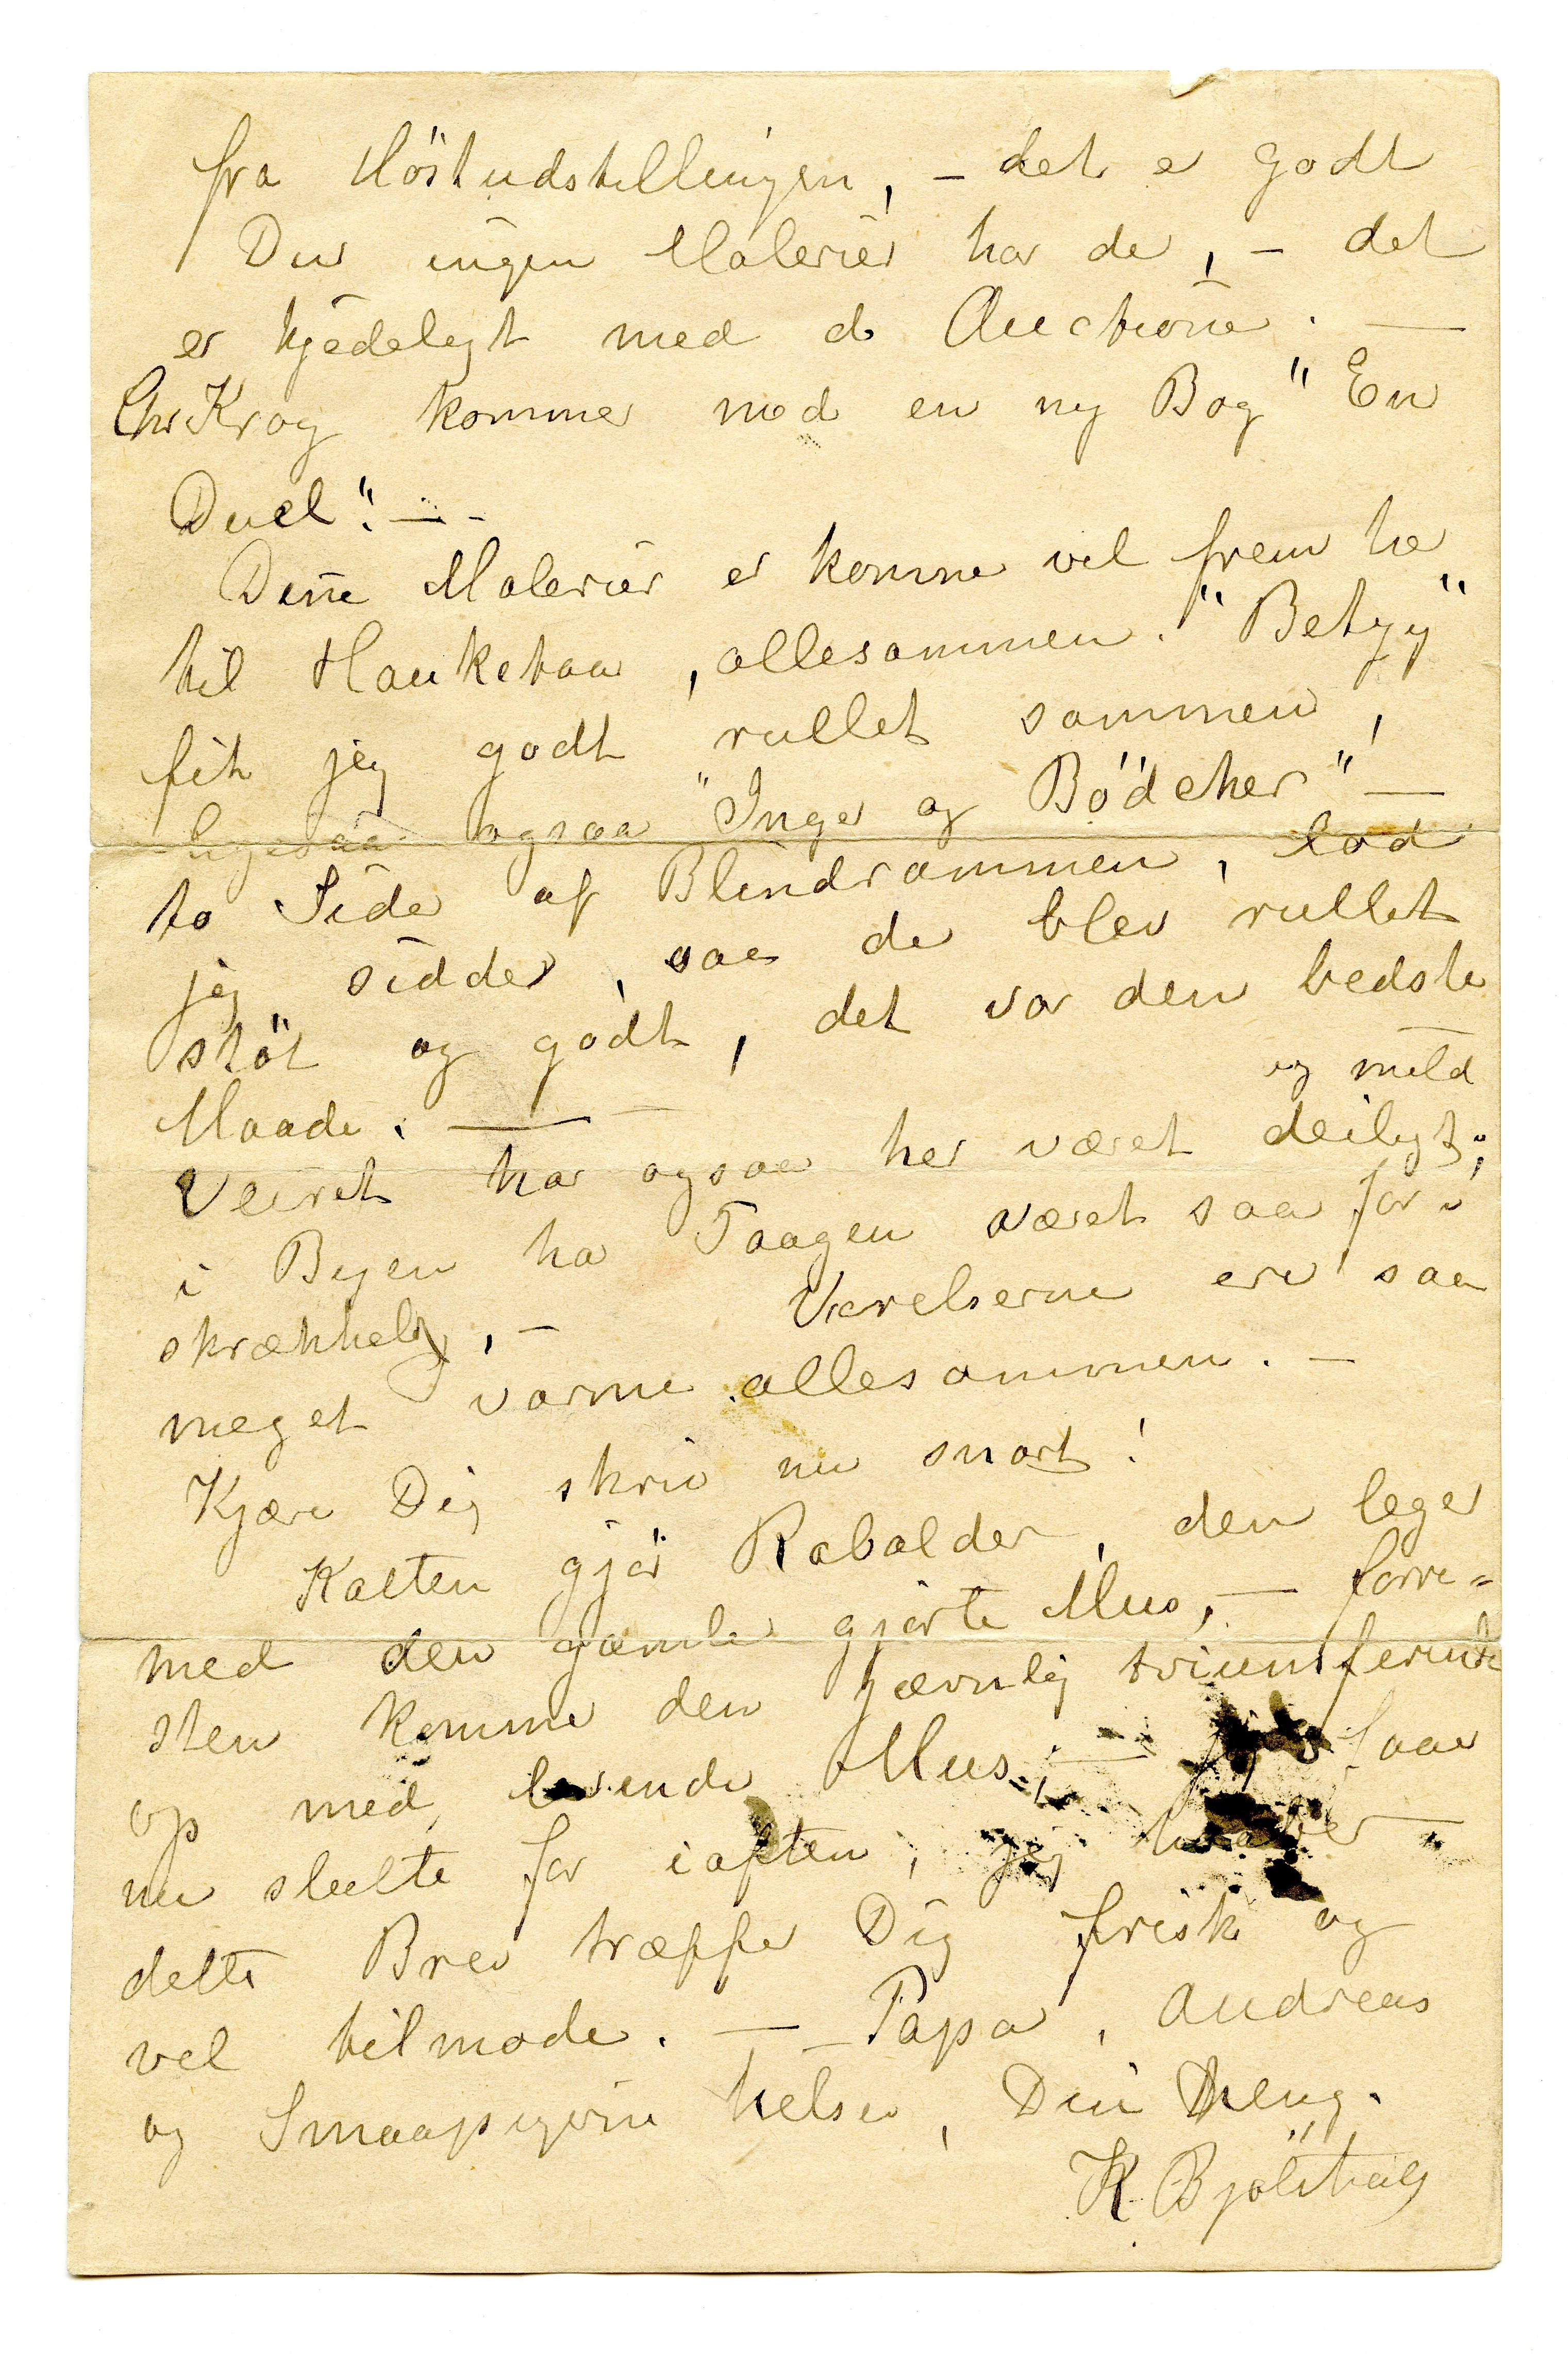 fra Höstudstillingen, – det er godt
Du ingen Malerier har der, – det
er kjedeligt med de Auctioner. —
Chr Krog kommer med en ny Bog "En
Duel". — -
Dine Malerier er komne vel frem her
til Hauketoa, allesammen. "Betzy"
fik jeg godt rullet sammen,
ligesaa ogsaa "Inger og Bödcher" —
to Sider af Blindrammen, lod
jeg sidder, saa de blev rullet
stöt og godt, det var den bedste
Maade. — –
og mild
Veiret har ogsaa her været deiligt;
i Byen har Taagen været saa for-
skrækkelig, – Værelserne ere saa
meget varme allesammen. –
Kjære Dig skriv nu snart!
Katten gjör Rabalder, den leger
med den gamle gjorte Mus, — forre=
sten kommer den jævnlig triumferende
op med levende Mus, — jeg faar
nu slutte for iaften, jeg haaber –
dette Brev træffer Dig frisk og
vel tilmode. — Papa, Andreas
og Smaapigerne helser, Din heng.
K. Bjölstad